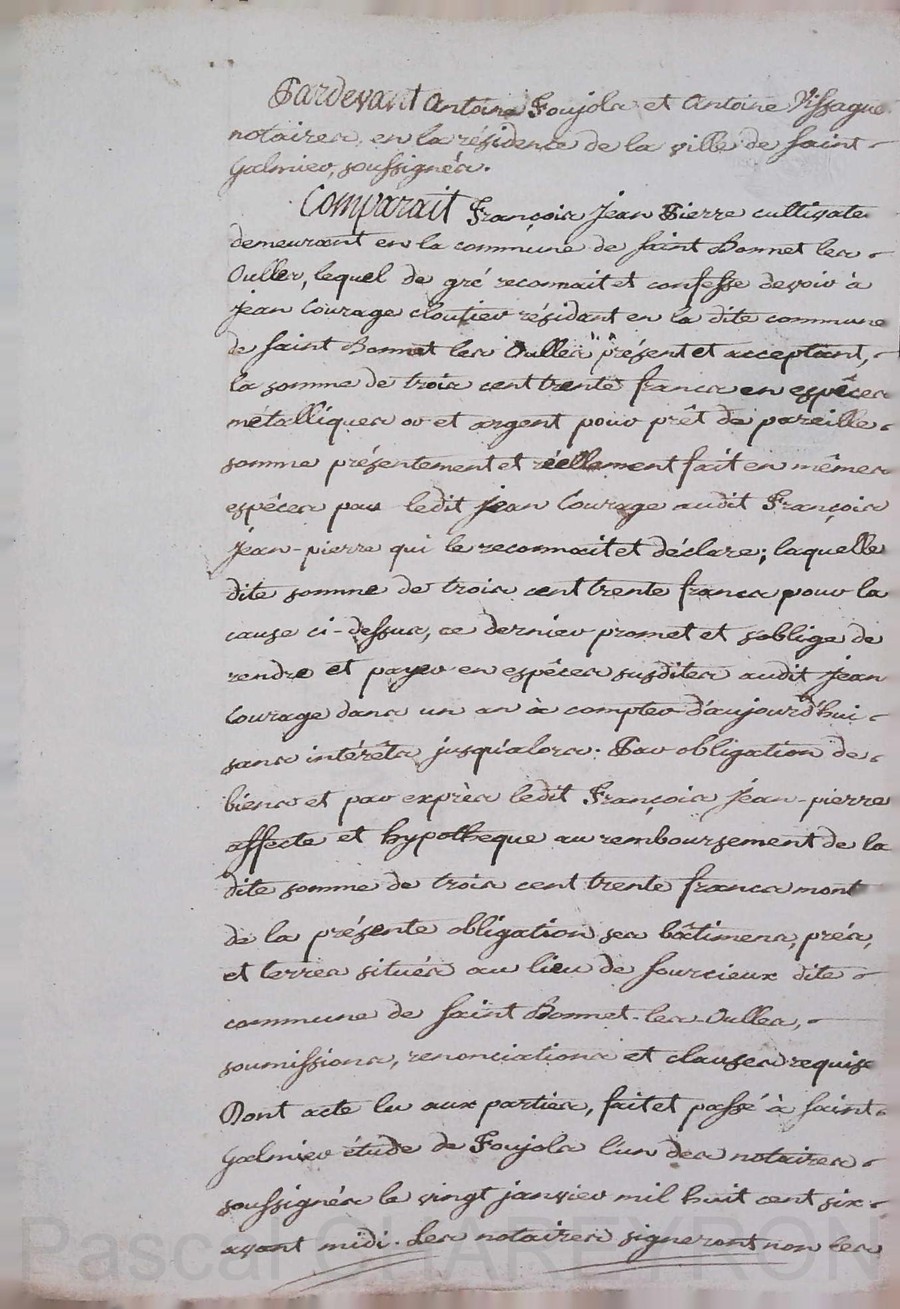 Pardevant Antoine Foujols et Antoine Vissague
notaires, en la résidence de la ville de Saint-
Galmier, soussignés.
Comparait François Jean Pierre cultivate
demeurant en la commune de Saint Bonnet les
Oulles, lequel de gré reconnait et confesse devoir à
Jean Courage cloutier résidant en la dite commune
de Saint Bonnet les Oulles présent et acceptant,
la somme de trois cent trente francs en espèces
métalliques or et argent pour prêt de pareille
somme présentement et réellement fait en mêmes
espèces par ledit Jean Courage audit François
Jean-pierre qui le reconnait et déclare; laquelle
dite somme de trois cent trente francs pour la
cause ci-dessus, ce dernier promet et soblige de
rendre et payer en espèces susdites audit Jean
Courage dans un an à compter d'aujourd'hui
sans intérêts jusqu'alors. Par obligation de
biens et par exprès ledit François Jean-pierre
affecte et hypothèque au remboursement de la
dite somme de trois cent trente francs mont
de la présente obligation ses bâtimens, prés,
et terres situés au lieu de Sourcieux dite
commune de Saint Bonnet-les-Oulles,
soumissions, renonciations et clauses requise
Dont acte lu aux parties, fait et passé à Saint-
Galmier étude de Foujols l'un des notaires
soussignés le vingt janvier mil huit cent six
avant midi. Les notaires signeront non les
Pascal CHAREYRON